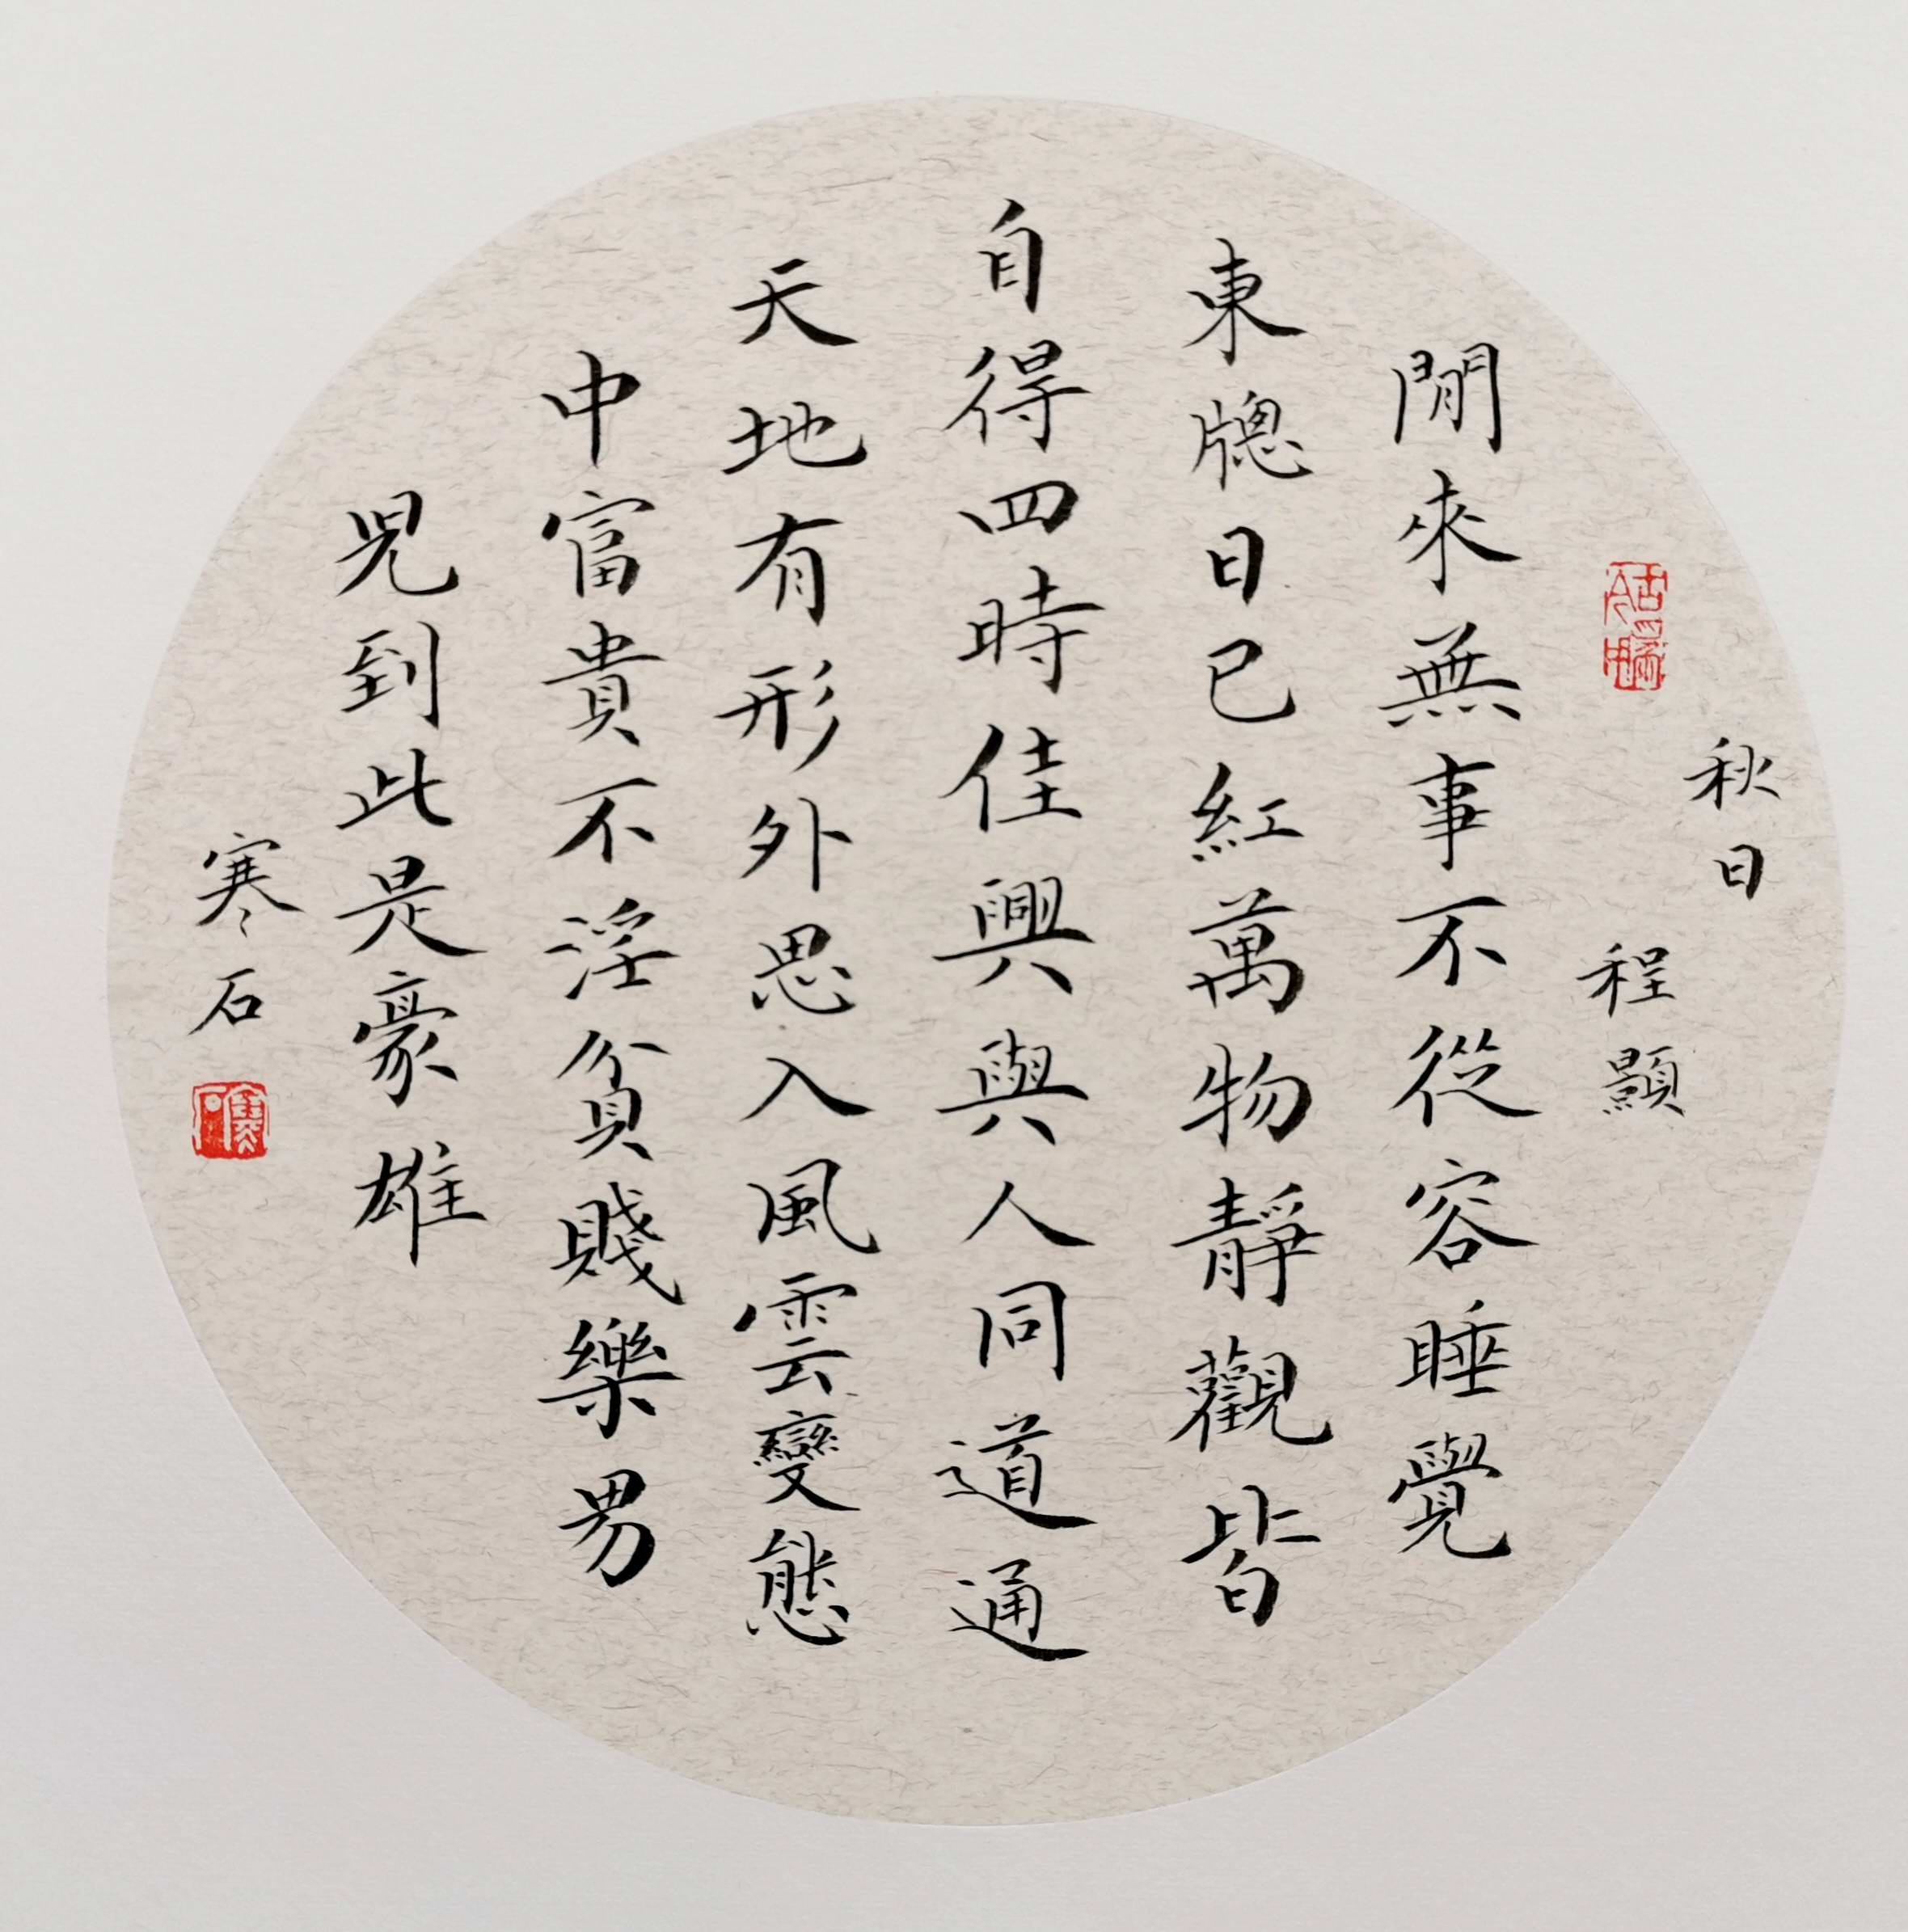 秋日
程顥
閒來無事不從容睡覺
東牕日已紅萬物靜觀皆
自得四時佳興與人同道通
天地有形外思入風雲變態
中富貴不淫貧賤樂男
兒到此是豪雄
寒石